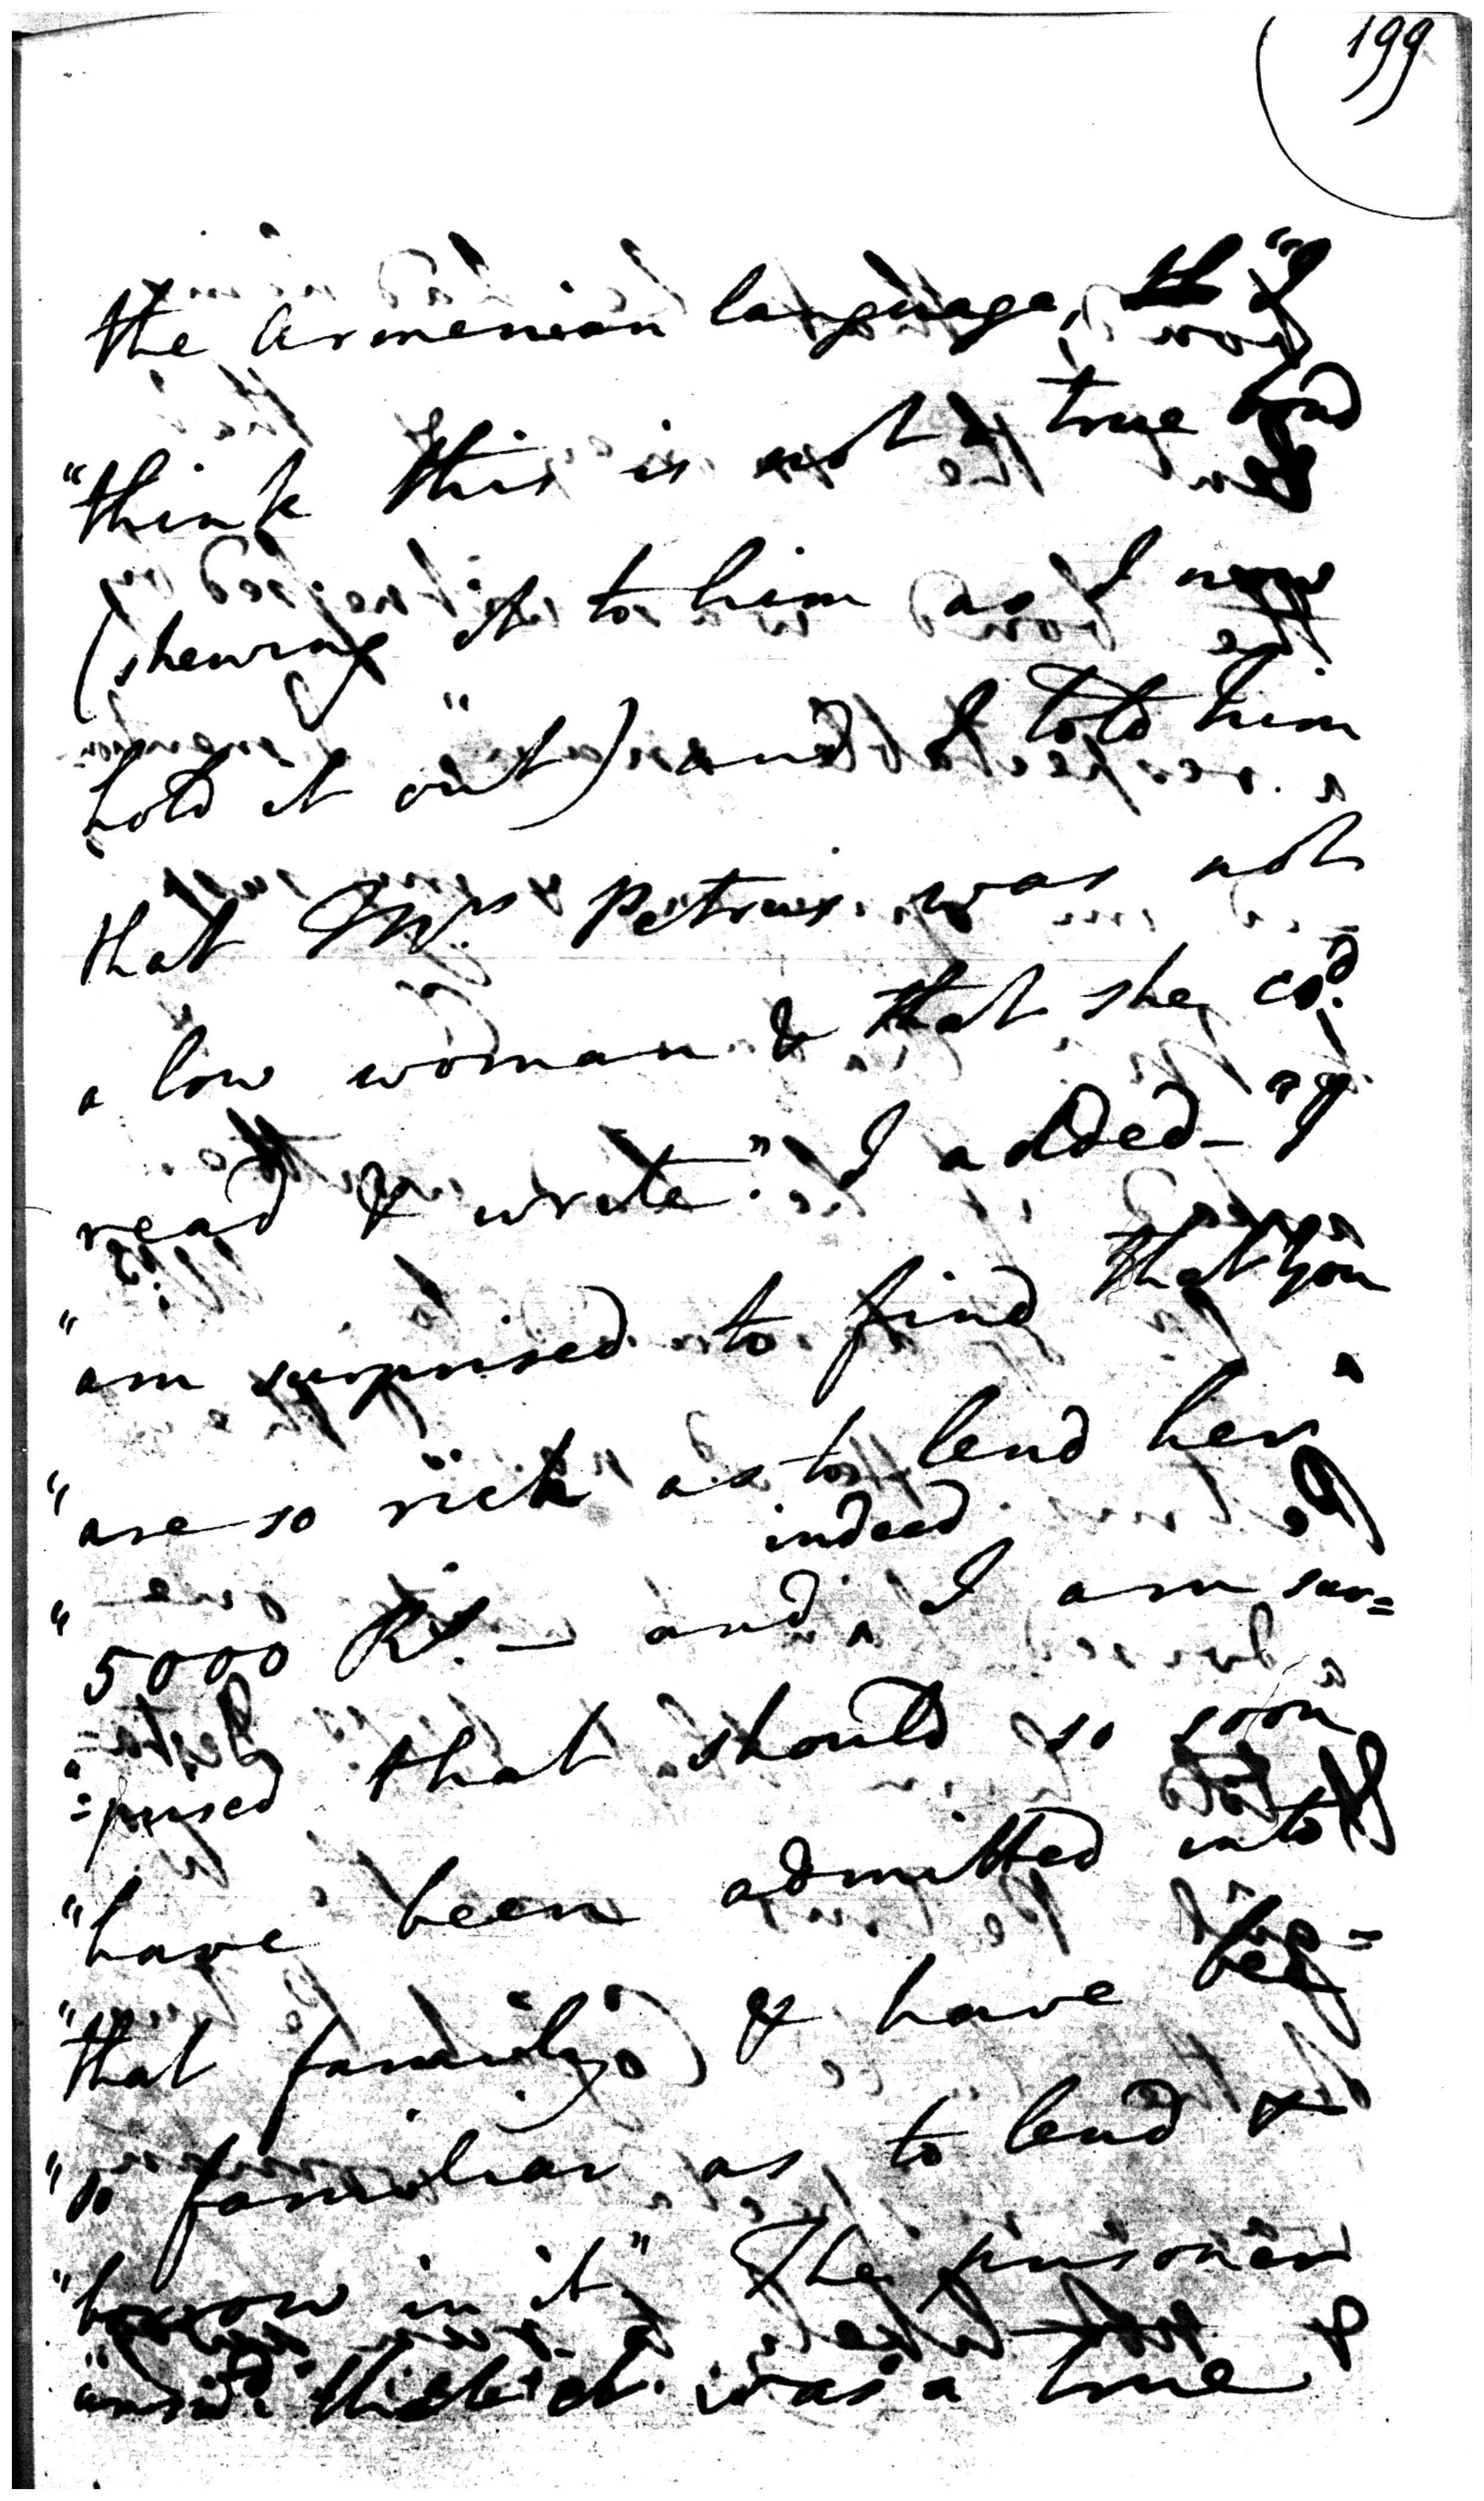 199
the Armenian language, "I
"think this is not a true bond
(shewing it to him as I now
hold it out") and I told him
that Mrs. Petruse was not
a low woman & that she cod.
read & write." I added - "I
"am surprised to find that you
"are so rich as to lend her
"5000 Rs. - and indeed, I am sur=
"=prised that should so soon
"have been admitted into
"that family, & have been
"so familiar as to lend &
"borrow in it" The prisoner
ansd. that it was a true